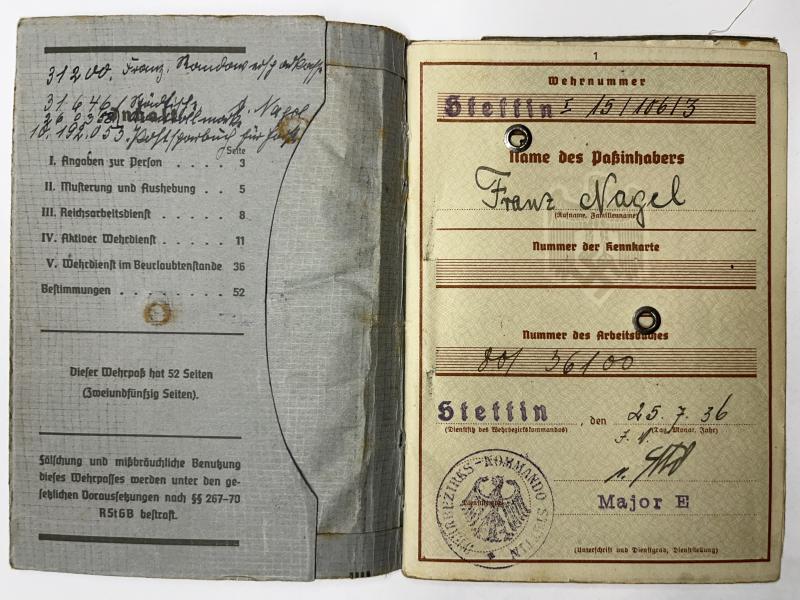 31200. Franz. Randowersparkasse
31.646. Städtische
26.036 D. Nagel
Inhalt
10.192.053. Postsparbuch für
Seite
I. Angaben zur Person . . . . . 3
II. Musterung und Aushebung . . 5
III. Reichsarbeitsdienst . . . . . 8
IV. Aktiver Wehrdienst . . . . . 11
V. Wehrdienst im Beurlaubtenstande 36
Bestimmungen . . . . . . . . 52
Dieser Wehrpaß hat 52 Seiten
(Zweiundfünfzig Seiten).
Fälschung und mißbräuchliche Benutzung
dieses Wehrpasses werden unter den ge-
setzlichen Voraussetzungen nach §§ 267–70
RStGB bestraft.
1
Wehrnummer
Stettin I 15/106/3
Name des Paßinhabers
Franz Nagel
(Rufname, Familienname)
Nummer der Kennkarte
Nummer des Arbeitsbuches
80/ 36100
Stettin, den 25.7.36
(Dienstsitz des Wehrbezirkskommandos) (Tag, Monat, Jahr)
J. V.
WEHRBEZIRKS-KOMMANDO STETTIN
Major E
(Unterschrift und Dienstgrad, Dienststellung)